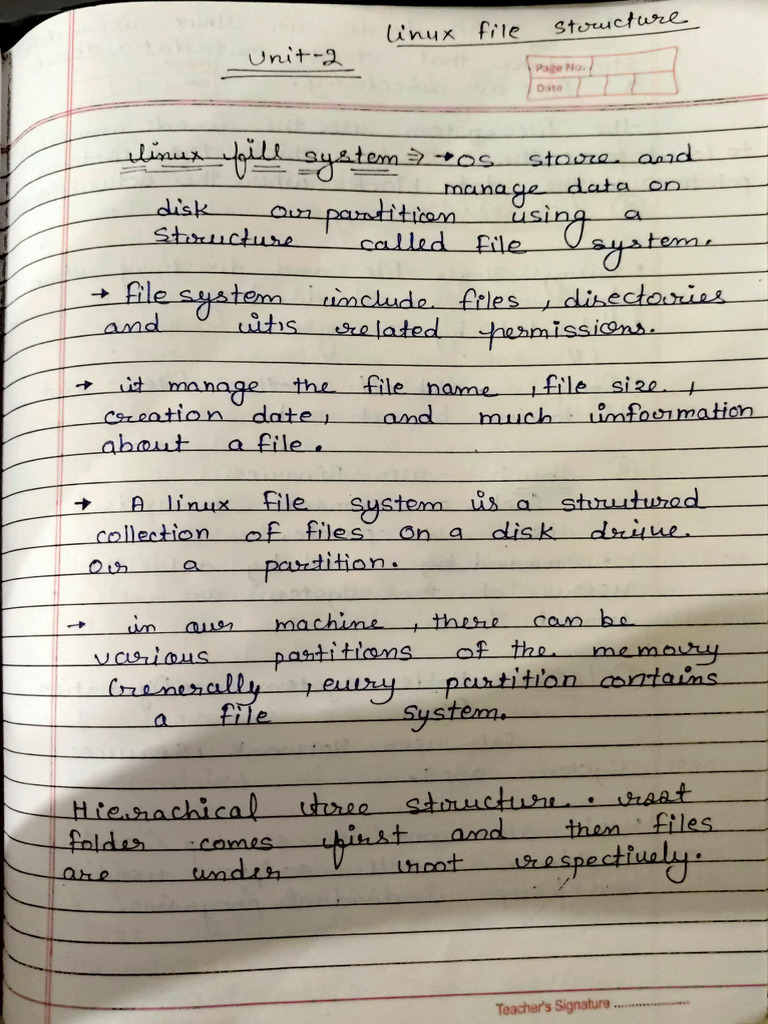 Linux file structure
Unit-2
Page No.
Date
linux fill system ⇒ → OS store and
manage data on
disk or partition using a
structure called file system.
→ file system include files, directories
and it's related permissions.
→ it manage the file name, file size,
creation date, and much information
about a file.
→ A linux file system is a strutured
collection of files on a disk drive.
Or a partition.
→ in our machine, there can be
various partitions of the memory
Generally, every partition contains
a file system.
Hierachical tree structure. root
folder comes first and then files
are under root respectively.
Teacher's Signature ....................